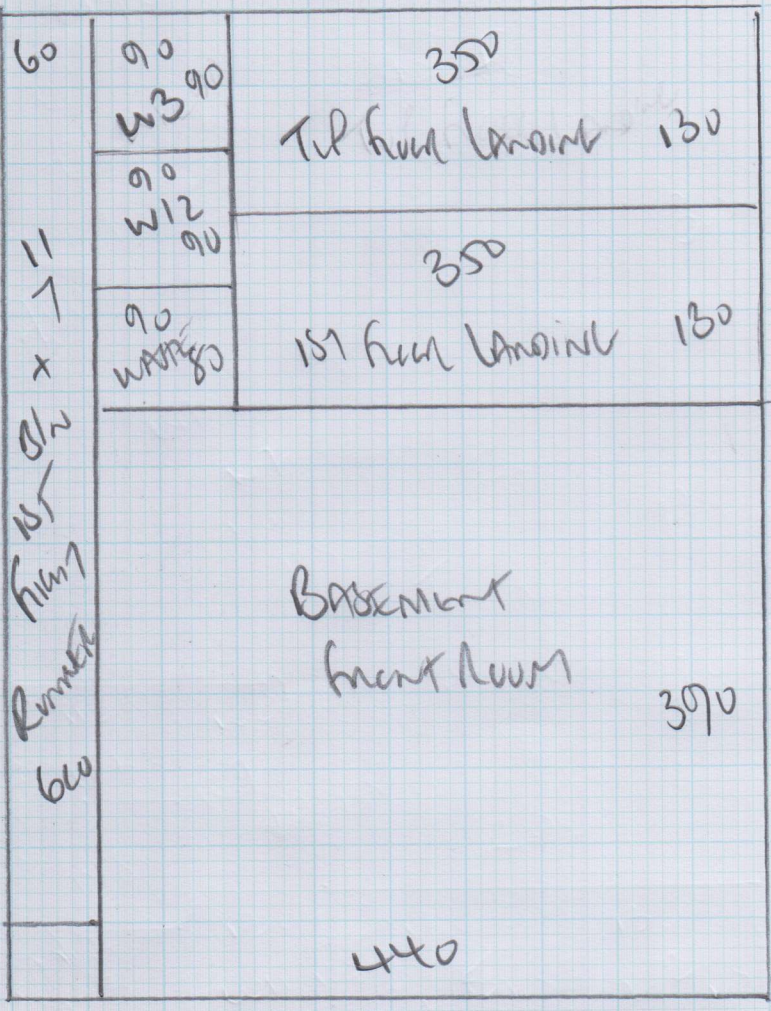 60
11
7
x
B/N
1ST
FLIGHT
RUNNER
600
90
W3 90
90
W12
90
90
WASTE 80
350
TOP FLOOR LANDING 130
350
1ST FLOOR LANDING 130
BASEMENT
FRONT ROOM
390
440